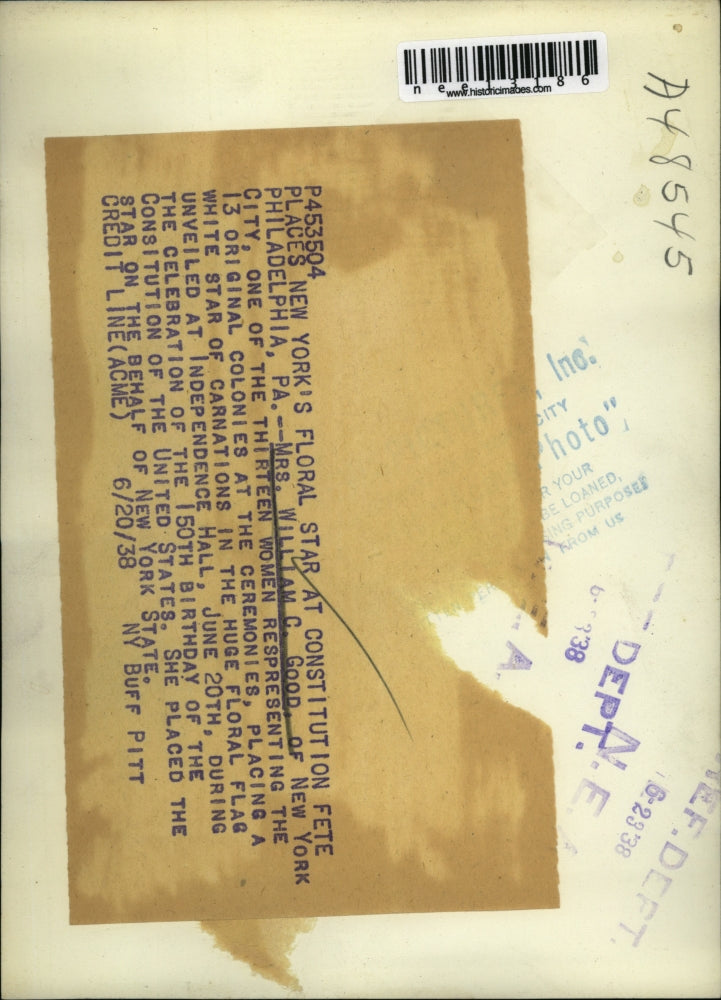 neel3186
www.historicimages.com
A48545
P453504
PLACES NEW YORK'S FLORAL STAR AT CONSTITUTION FETE
PHILADELPHIA, PA.--MRS. WILLIAM C. GOOD, OF NEW YORK
CITY, ONE OF THE THIRTEEN WOMEN RESPRESENTING THE
13 ORIGINAL COLONIES AT THE CEREMONIES, PLACING A
WHITE STAR OF CARNATIONS IN THE HUGE FLORAL FLAG
UNVEILED AT INDEPENDENCE HALL, JUNE 20TH, DURING
THE CELEBRATION OF THE 150TH BIRTHDAY OF THE
CONSITUTION OF THE UNITED STATES. SHE PLACED THE
STAR ON THE BEHALF OF NEW YORK STATE.
CREDIT LINE(ACME) 6/20/38 NY BUFF PITT
Inc.
CITY
Photo"
R YOUR
BE LOANED,
ING PURPOSES
FROM US
DEPT.
N.E.A.
6-23'38
REF. DEPT.